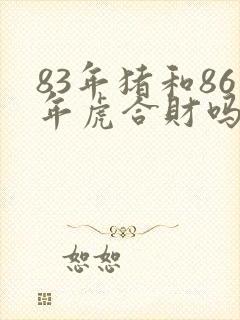 83年猪和86
年虎合財吗
恕恕